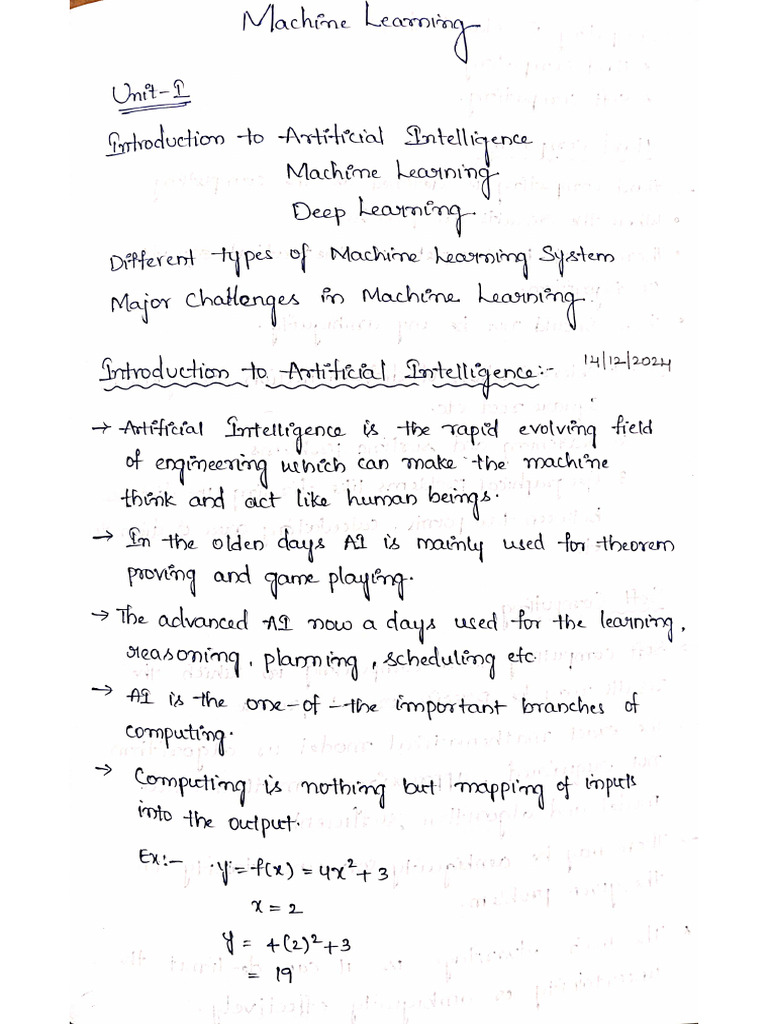 Machine Learning
Unit-I
Introduction to Artificial Intelligence
Machine Learning
Deep Learning.
Different types of Machine Learning System
Major Challenges in Machine Learning.
Introduction to Artificial Intelligence:- 14/12/2024
→ Artificial Intelligence is the rapid evolving field
of engineering which can make the machine
think and act like human beings.
→ In the olden days AI is mainly used for theorem
proving and game playing.
→ The advanced AI now a days used for the learning,
reasoning, planning, scheduling etc.
→ AI is the one-of-the important branches of
computing.
→ Computing is nothing but mapping of inputs
into the output.
Ex:- y = f(x) = 4x²+3
x = 2
y = 4(2)²+3
= 19